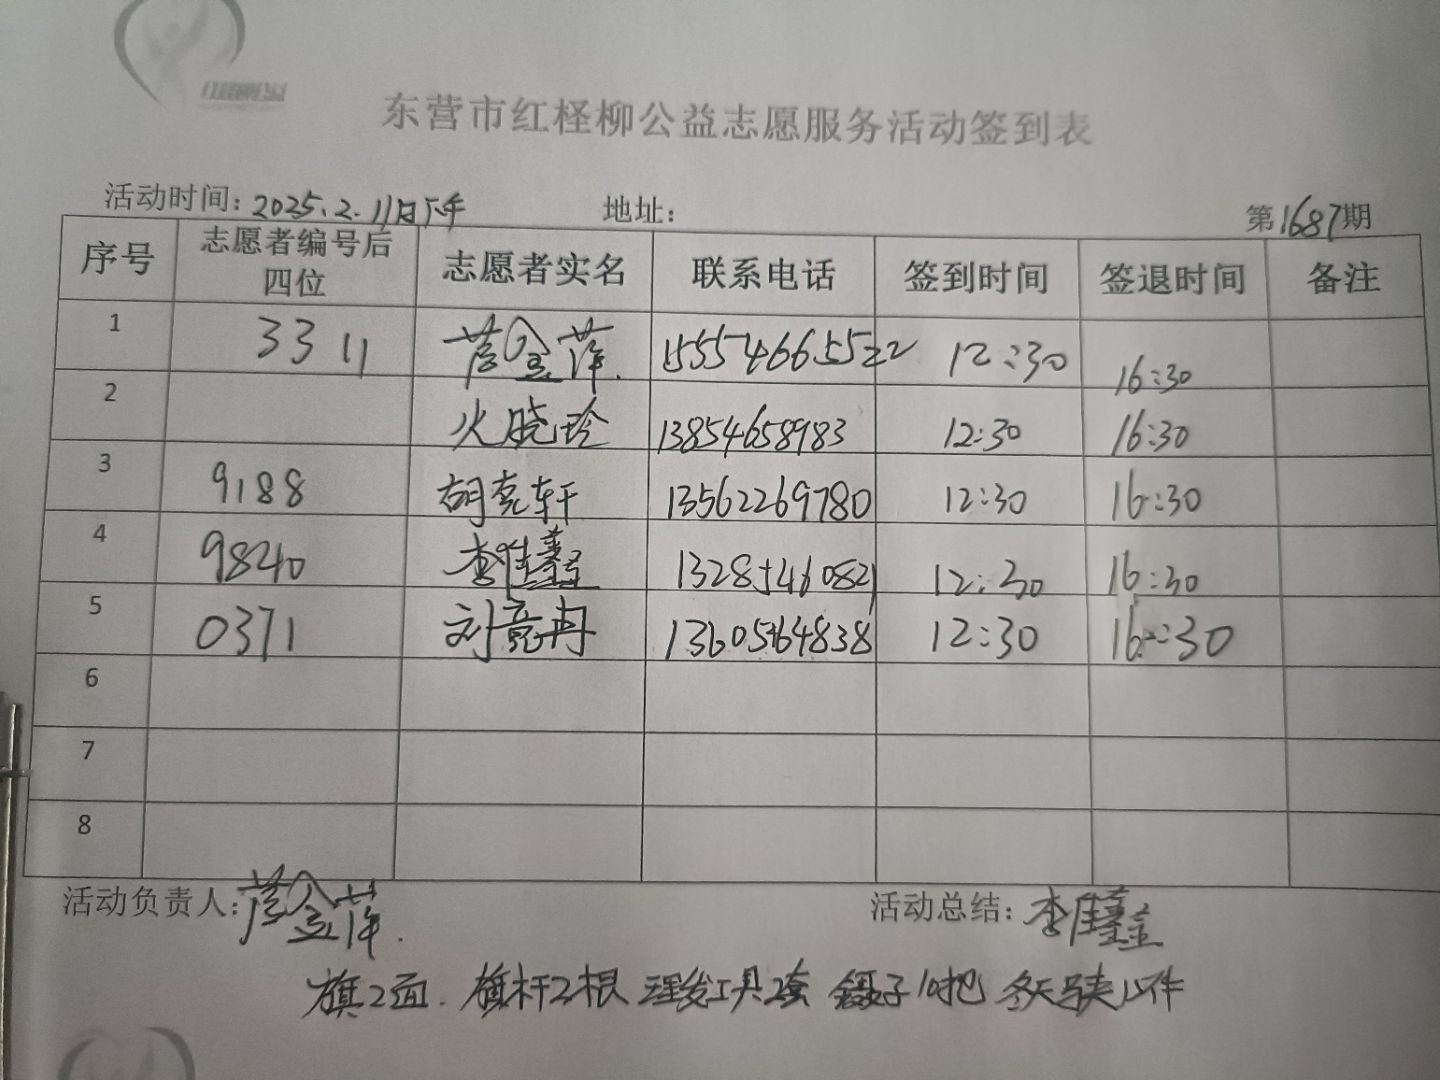 东营市红柽柳公益志愿服务活动签到表
活动时间：2025.2.11日下午 地址： 第1687期
序号 志愿者编号后四位 志愿者实名 联系电话 签到时间 签退时间 备注
1 3311 金萍 15554665522 12:30 16:30
2 火晓玲 13854658983 12:30 16:30
3 9188 胡克轩 13562269780 12:30 16:30
4 9840 李佳鑫 13285460821 12:30 16:30
5 0371 刘竞冉 13605464838 12:30 16:30
6
7
8
活动负责人： 金萍 活动总结：李佳鑫
旗2面.旗杆2根 理发工具2套 镊子10把 冬天马夹 件